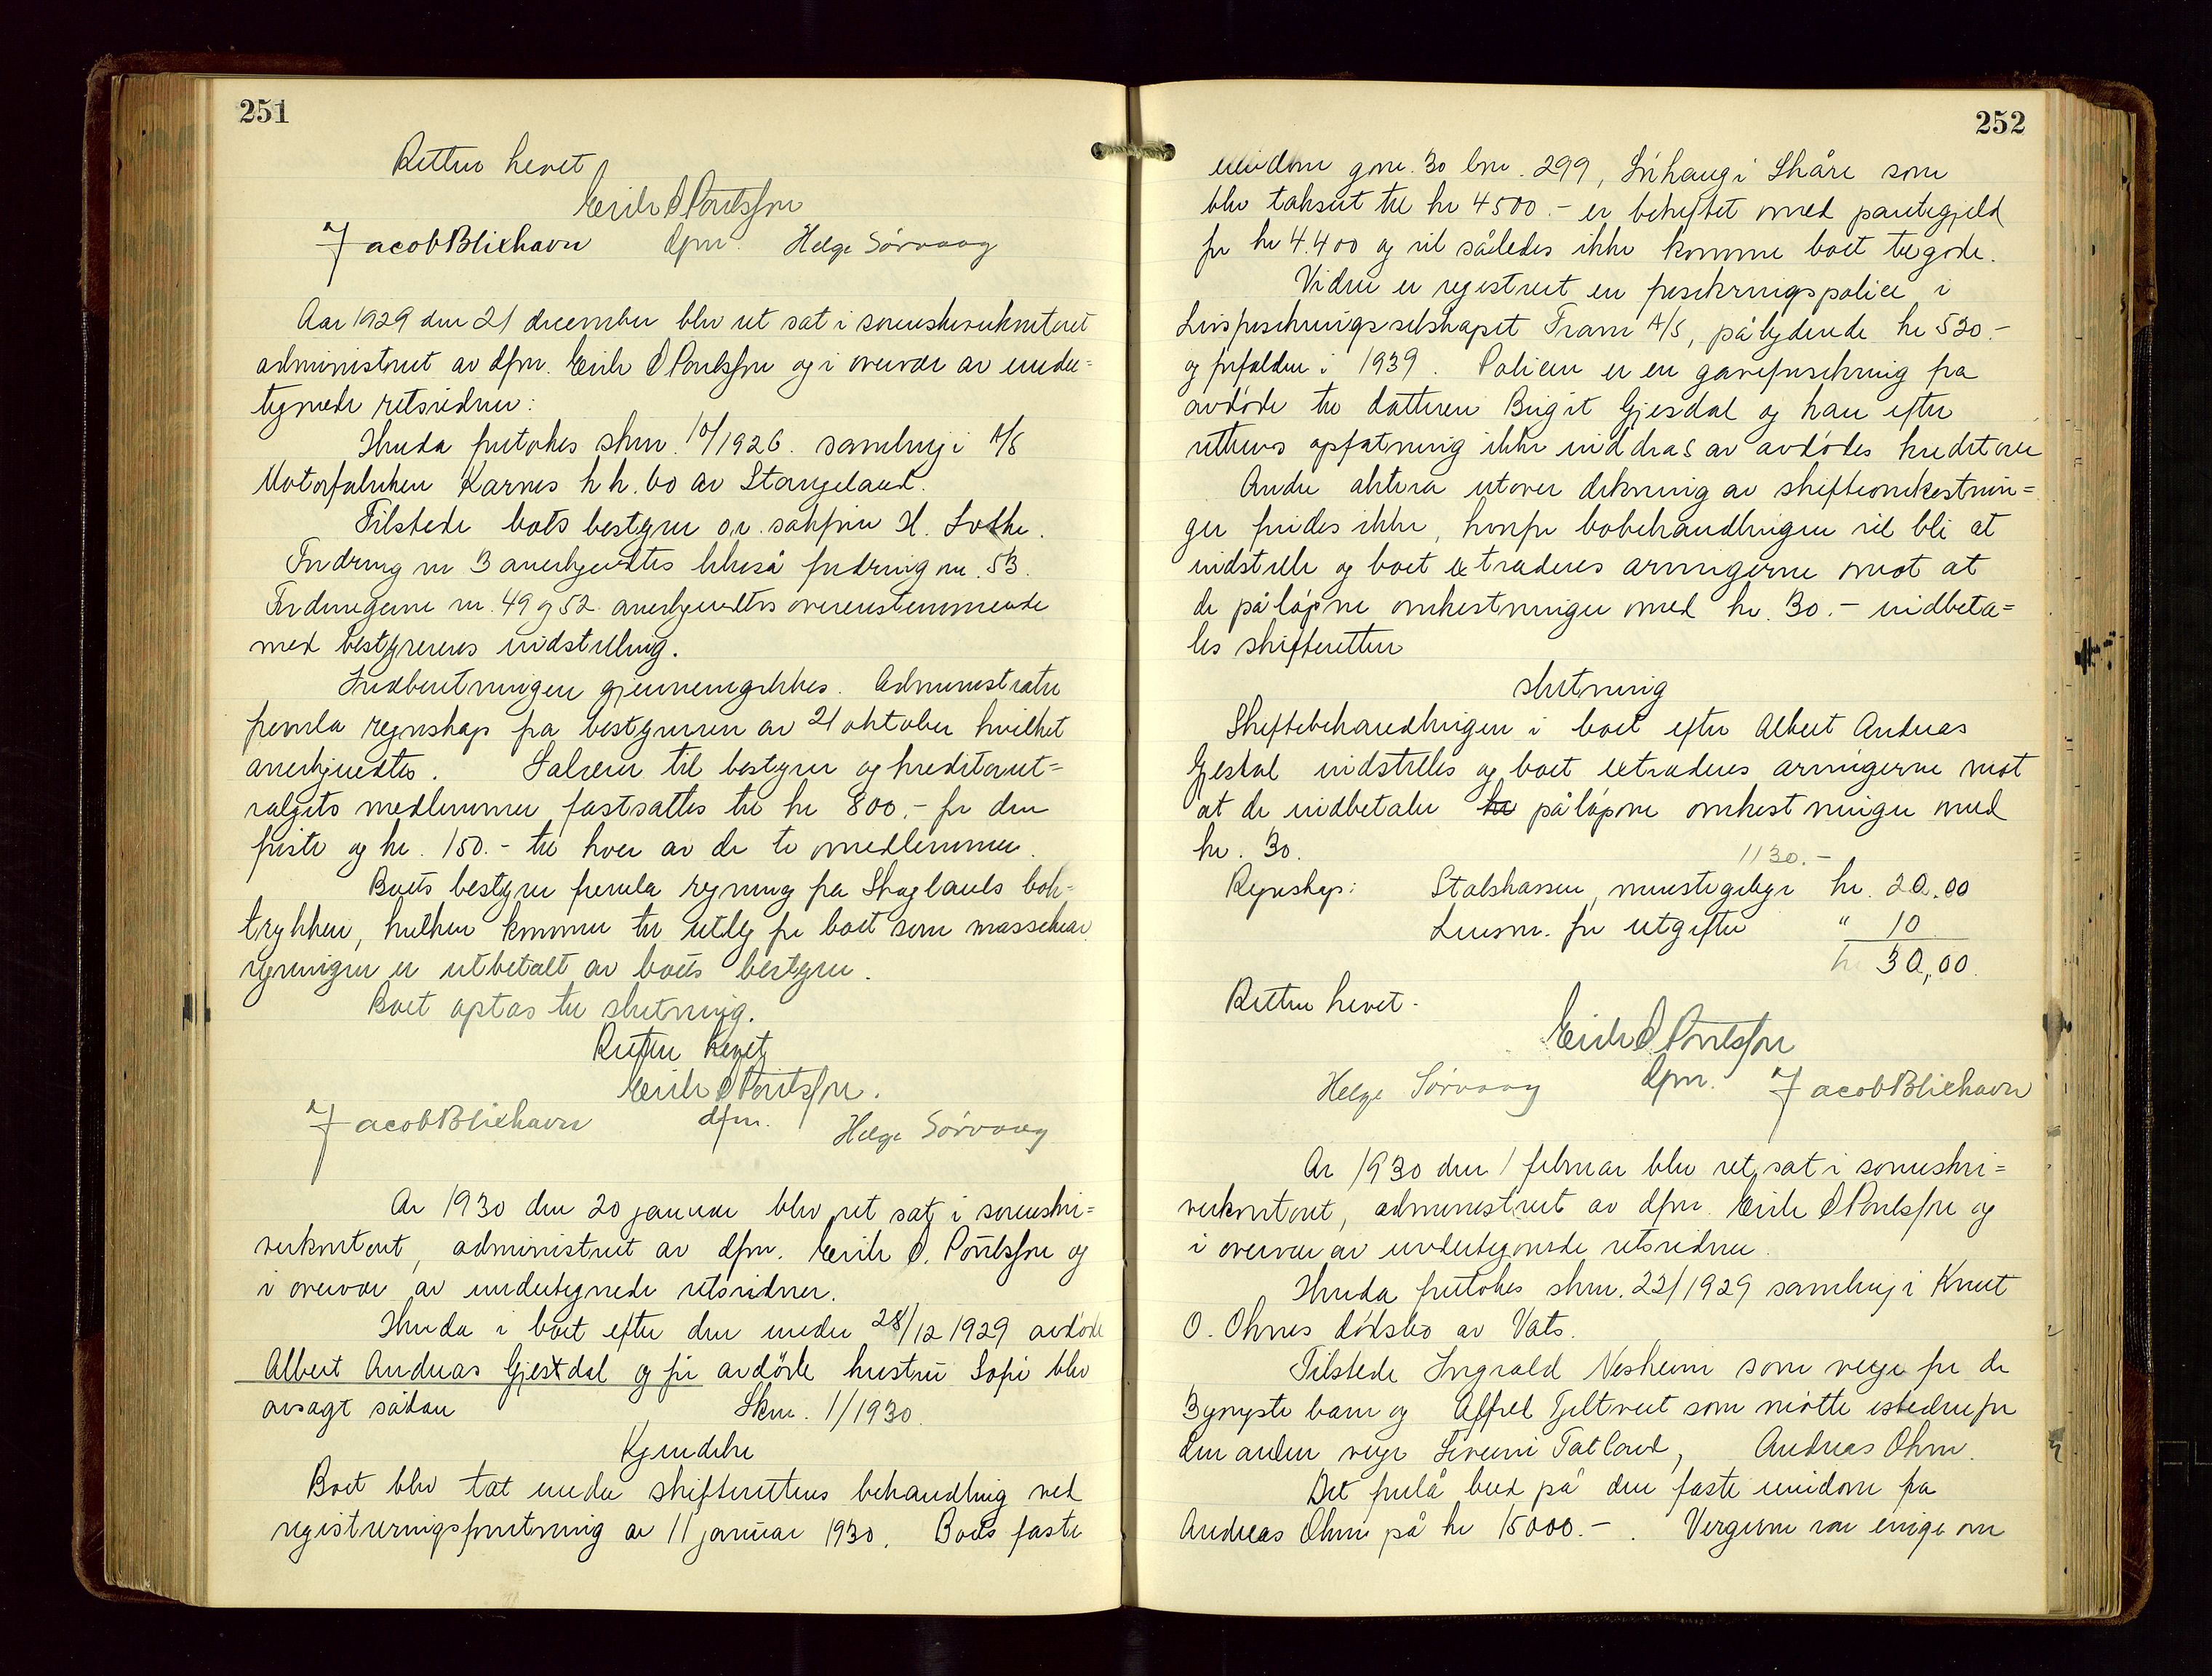 251
Retten hevet
Erik S Poulsson
Jacob Blixhavn dfm. Helge Sørvaag
Aar 1929 den 21 december blev ret sat i sorenskriverkontoret
administrert av dfm. Erik S Poulsson og i overvær av under=
tegnede retsvidner:
Herunda foretokes skm. 10/1926. samling i A/S
Motorfabriken Karnes k k. bo av Stangeland.
Tilstede boets bestyrer o.r. sakfører H. Lothe.
Fordring nr 3 anerkjendtes likeså fordring nr. 53.
Fordringerne nr. 49 og 52 anerkjendtes overensstemmende
med bestyrerens indstilling.
Indberetningen gjennemgikkes. Administrator
fremla regnskap fra bestyreren av 21 oktober hvilket
anerkjendtes. Salærer til bestyrer og kreditorut=
valgets medlemmer fastsattes til kr 800.- for den
første og kr. 150.- til hver av de to medlemmer.
Boets bestyrer fremla regning fra Skoglands bok=
trykkeri, hvilken kommer til utlegg for boet som massekrav
regningen er utbetalt av boets bestyrer.
Boet optas til slutning.
Retten hevet
Erik S Poulsson.
Jacob Blixhavn dfm. Helge Sørvaag
År 1930 den 20 januar blev ret sat i sorenskri=
verkontoret, administrert av dfm. Erik S. Poulsson og
i overvær av undertegnede retsvidner.
Herunda i boet efter den under 28/12 1929 avdøde
Albert Andreas Gjesdal og før avdøde hustru Sofie blev
avsagt sådan Skm. 1/1930.
Kjendelse
Boet blev tat under skifterettens behandling ved
registreringsforretning av 11 januar 1930. Boets faste
252
eiendom gnr. 30 bnr. 299, Solhaug i Skåre som
blev taksert til kr 4500.- er beheftet med pantegjeld
for kr 4.400 og vil således ikke komme boet tilgode.
Videre er registrert en forsikringspolice i
Livsforsikringsselskapet Fram A/S, pålydende kr 520.-
og forfalden i 1939. Policen er en gaveforsikring fra
avdøde til datteren Birgit Gjesdal og kan efter
rettens opfatning ikke inddras av avdødes kreditorer
Andre aktiva utover dekning av skifteomkostnin=
ger findes ikke, hvorfor bobehandlingen vil bli at
indstille og boet extraderes arvingerne mot at
de påløpne omkostninger med kr. 30.- indbeta=
les skifteretten
slutning
Skiftebehandlingen i boet efter Albert Andreas
Gjesdal indstilles og boet extraderes arvingerne mot
at de indbetaler kr påløpne omkostninger med
kr. 30.
1130.-
Regnskap: Statskassen, minstegebyr kr. 20.00
Lensm. for utgifter " 10
kr 30,00.
Retten hevet.
Erik S Poulsson
Helge Sørvaag dfm. Jacob Blixhavn
År 1930 den 1 februar blev ret sat i sorenskri=
verkontoret, administrert av dfm. Erik S Poulsson og
i overvær av undertegnede retsvidner.
Herunda foretokes skm. 22/1929 samling i Knut
O. Ohmes dødsbo av Vats.
Tilstede Ingvald Nesheim som verge for de
3 yngste barn og Alfred Tjeltveit som møtte istedenfor
den anden verge Severin Tatland, Andreas Ohm.
Det forelå bud på den faste eiendom fra
Andreas Ohm på kr 15000.-. Vergerne var enige om